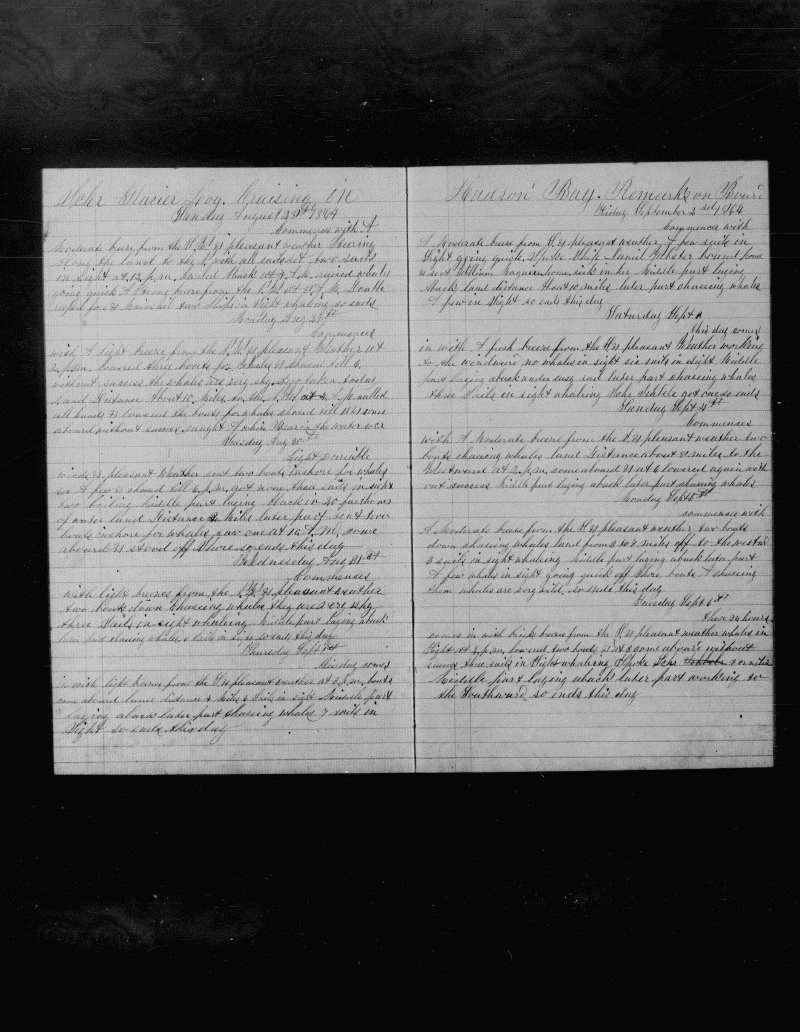 Schr Glacier Log. Cruising in
Sunday August 28th 1864
Commences with A
Moderate breeze from the N.W. & pleasant weather Steering
Along the land to the with all sail set two sails
in sight at 12 p.m. hauled Aback at 4 A.M. raised whales
going quick A strong breeze from the at 8 A.M. Double
reefed for & Mainsail two Ships in Sight whaling so ends
Monday Aug 29th
Commences
with A light breeze from the & pleasant Weather at
2 p.m. lowered three boats for whales & chased till 6,
without success the whales are very shy
Land Distance About 10 miles to the at 4 A.M. called
all hands & lowered the boats for whales chased till 11 & come
aboard without success caught A white Bear in the water over
Tuesday Aug 30th
Light variable
winds & pleasant Weather sent two boats inshore for whales
see A few & chased till 6 p.m. got none three sails in sight
two boiling Middle part laying Aback in 20 farthoms
of water land Distance 2 Miles later part sent two
boats inshore for whales saw one at 10 A.M. come
aboard & stood off Shore so ends this day
Wednesday Aug 31st
Commences
with light breezes from the & pleasant weather
two boats down Chaseing whales they are very shy
three Sails in sight whaleing Middle part laying aback
later part chaseing whales 4 Sails in sight so ends this day
Thursday Sept 1st
this day comes
in with light breezes from the & pleasant weather at 2 p.m. boats
come aboard land distance Miles 6 Sails in sight Middle part
laying aback later part chaseing whales 7 sails in
Sight so ends this day
Hudson Bay. Remarks on Board
Friday September 2nd 1864
Commences with
A Moderate breeze from & pleasant weather A few sails in
Sight going quick, Spoke Ship Daniel Webster bound home
& sent William Wagner home sick in her Middle part laying
Aback land distance About 10 miles later part chaseing whales
A few in Sight so ends this day
Saturday Sept
this day comes
in with A fresh breeze from the & pleasant Weather working
to the windward no whales in sight six sails in sight Middle
part laying aback under easy sail later part chaseing whales
three Sails in sight whaleing Schr Isabele got one so ends
Sunday Sept 4th
Commences
with A Moderate breeze from the & pleasant weather two
boats chaseing whales land Distance about 9 miles to the
Westward at 2 p.m. come aboard & at 6 lowered again with
out success Middle part laying aback later part chaseing whales
Monday Sept 5th
commences with
A Moderate breeze from the & pleasant weather two boats
down chaseing whales land from 3 to 9 miles off to the westward
3 sails in sight whaleing Middle part laying aback later part
A few whales in sight going quick off Shore boats A chaseing
them whales are very wild, so ends this day
Tuesday Sept 6th
these 24 hours
comes in with brisk breezes from the & pleasant weather whales in
Sight at 2 p.m. lowered two boats & at 5 come aboard without
success three sails in Sight whaleing Spoke Schr Isabele
Middle part laying aback later part working to
the Southward so ends this day